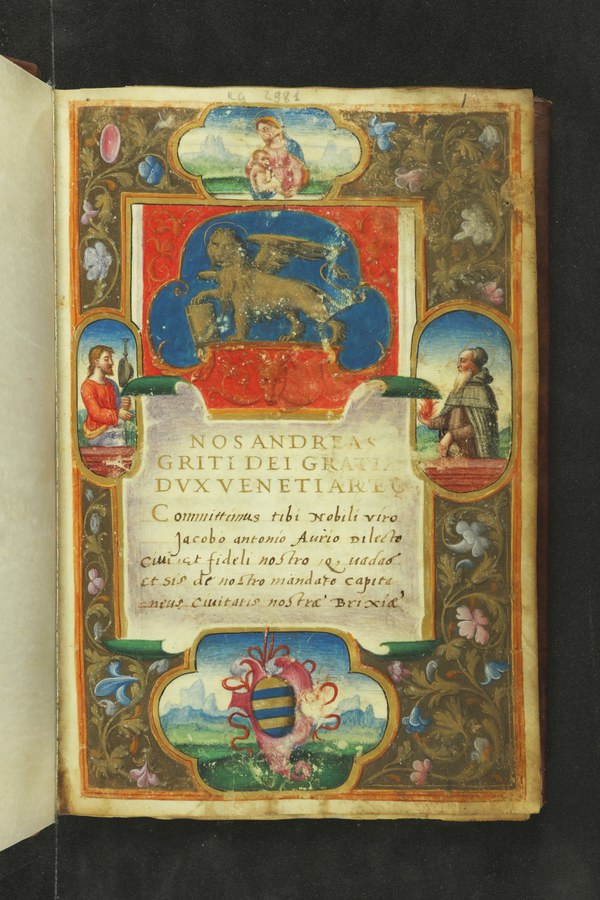 RG 2981
1
NOS ANDREAS
GRITI DEI GRATIA
DVX VENETIAR EC
Committimus tibi Nobili viro
Jacobo antonio Aurio Dilecto
Civi et fideli nostro Q vadas
et sis de nostro mandato capita
neus Civitatis nostræ Brixiæ